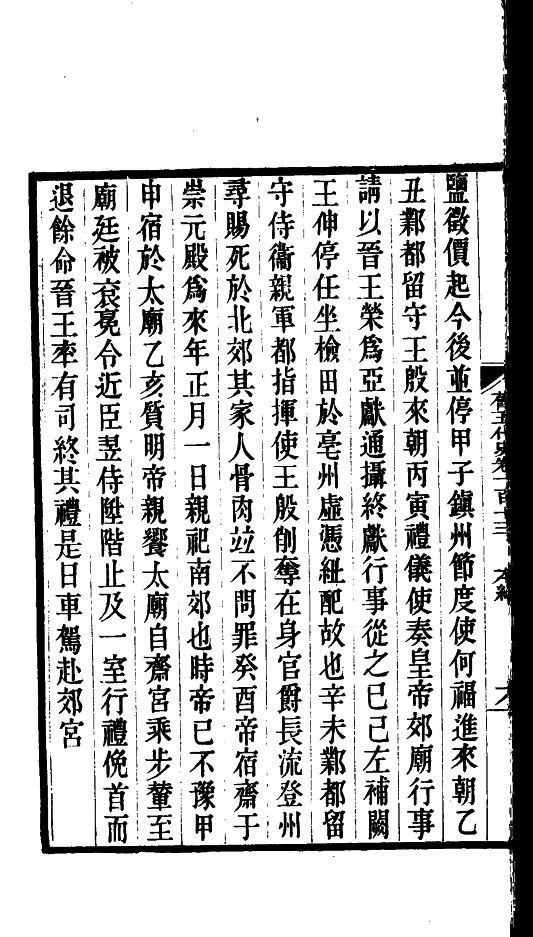 舊五代史卷一百十三 本紀
鹽徵價起今後並停甲子鎮州節度使何福進來朝乙
丑鄴都留守王殷來朝丙寅禮儀使奏皇帝郊廟行事
請以晉王榮爲亞獻通攝終獻行事從之己巳左補闕
王伸停任坐檢田於亳州虛憑紐配故也辛未鄴都留
守侍衞親軍都指揮使王殷削奪在身官爵長流登州
尋賜死於北郊其家人骨肉竝不問罪癸酉帝宿齋于
崇元殿爲來年正月一日親祀南郊也時帝已不豫甲
申宿於太廟乙亥質明帝親饗太廟自齋宮乘步輦至
廟廷被袞冕令近臣翌侍陞階止及一室行禮俛首而
退餘命晉王率有司終其禮是日車駕赴郊宮